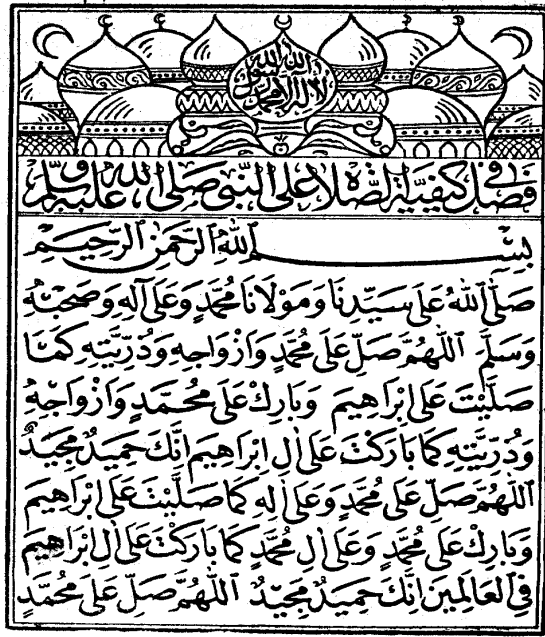 لا إله إلا الله محمد رسول الله
فصل في كيفية الصلاة على النبي صلى الله عليه وسلم
بِسْمِ اللهِ الرَّحْمَنِ الرَّحِيمِ
صَلَّى اللهُ عَلَى سَيِّدِنَا وَمَوْلَانَا مُحَمَّدٍ وَعَلَى آلِهِ وَصَحْبِهِ
وَسَلَّمَ اَللّٰهُمَّ صَلِّ عَلَى مُحَمَّدٍ وَاَزْوَاجِهِ وَذُرِّيَّتِهِ كَمَا
صَلَّيْتَ عَلَى اِبْرَاهِيمَ وَبَارِكْ عَلَى مُحَمَّدٍ وَاَزْوَاجِهِ
وَذُرِّيَّتِهِ كَمَا بَارَكْتَ عَلَى اٰلِ اِبْرَاهِيمَ اِنَّكَ حَمِيدٌ مَجِيدٌ
اَللّٰهُمَّ صَلِّ عَلَى مُحَمَّدٍ وَعَلَى اٰلِهِ كَمَا صَلَّيْتَ عَلَى اِبْرَاهِيمَ
وَبَارِكْ عَلَى مُحَمَّدٍ وَعَلَى اٰلِ مُحَمَّدٍ كَمَا بَارَكْتَ عَلَى اٰلِ اِبْرَاهِيمَ
فِي الْعَالَمِينَ اِنَّكَ حَمِيدٌ مَجِيدٌ اَللّٰهُمَّ صَلِّ عَلَى مُحَمَّدٍ